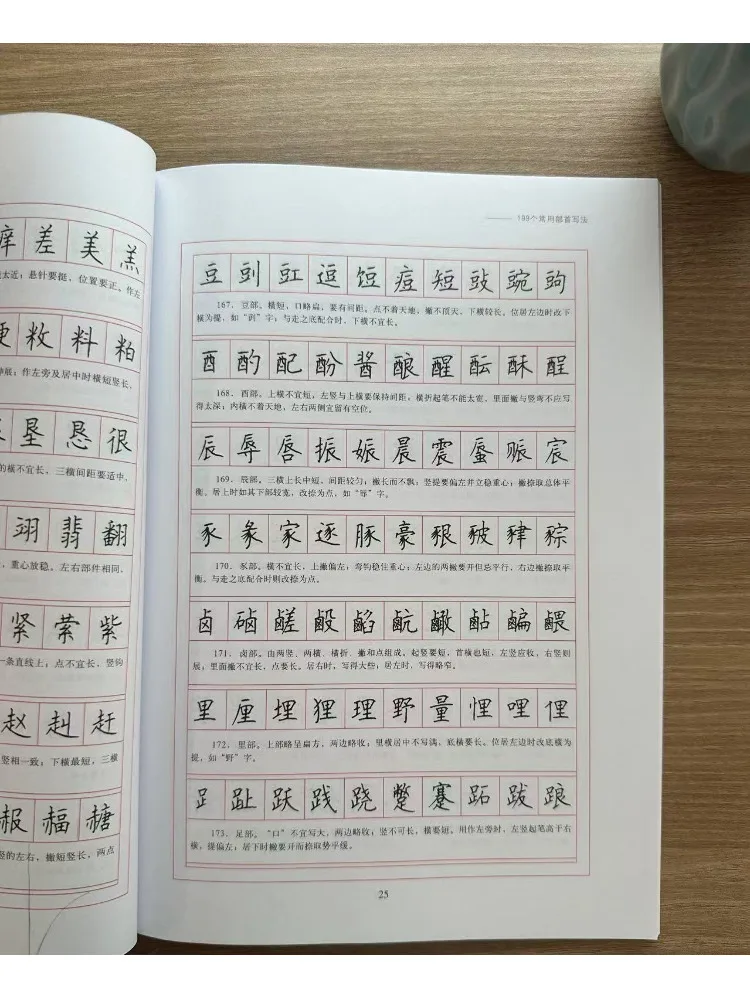 痒差美羔
太近；悬针要挺，位置要正。作左
敉料粕
伸展；作左旁及居中时横短竖长，
垦恳很
的横不宜长，三横间距要适中，
翊翡翻
，重心放稳。左右部件相同，
紧萦紫
一条直线上；点不宜长，竖钩
赵赳赶
竖相一致；下横最短，三横
赧福赯
竖的左右，撇短竖长，两点
198个常用部首写法
豆剅豇逗饾痘短豉豌
167．豆部。横短，口略扁，要有间距。点不着天地，撇不顶天，下横较长。位居左边时改下
横为提，如“剅”字；与走之底配合时，下横不宜长。
酉酌配酚酱酿醒酝酥酲
168．西部。上横不宜短，左竖与上横要保持间距，横折起笔不能太宽，里面撇与竖弯不应写
得太深；内横不着天地，左右两侧宜留有空位。
辰辱唇振娠晨震蜃赈宸
169．辰部。三横上长中短，间距较匀；撇长而不飘；竖提要偏左并立稳重心；撇捺取总体平
衡。居上时如其下部较宽，改捺为点，如“辱”字。
豕彖家逐豚豪
170．豕部。横不宜长，上撇偏左；弯钩稳住重心；左边的两撇要开但忌平行，右边撇捺取平
衡。与走之底配合时则改捺为点。
卤
171．卤部。由两竖、两横、横折、撇和点组成。起竖要短，首横也短，左竖应收，右竖则
展；里面撇不宜长，点要长。居右时，写得大些；居左时，写得略窄。
里厘埋狸理野量悝哩俚
172．里部。上部略呈扁方，两边略收；里横居中不写满，底横要长。位居左边时改底横为
提，如“野”字。
⻊趾跃践跷蹩蹇跖跋踉
173．足部。“口”不宜写大，两边略收；竖不可长，横要短。用作左旁时，左竖起笔高于右
横，提偏左；居下时撇要开而捺取势乎缓。
25